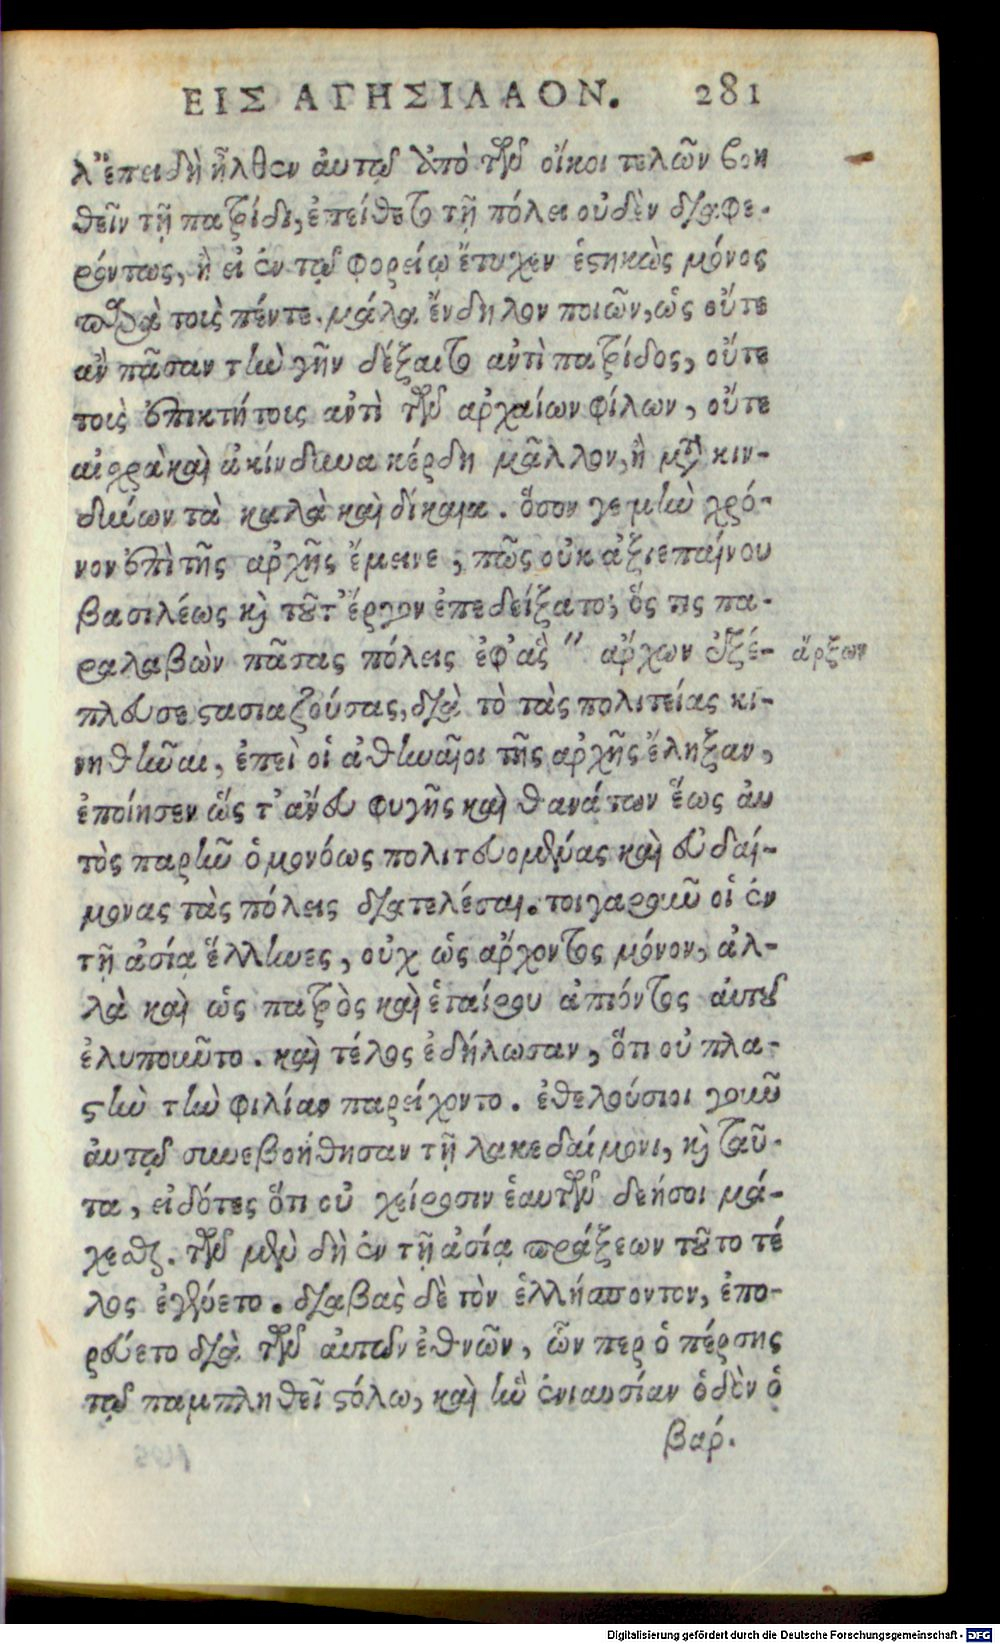 ΕΙΣ ΑΓΗΣΙΛΑΟΝ. 281
λ' ἐπειδὴ ἦλθεν ἀυτῷ ἀπὸ τῶν οἴκοι τελῶν βοη
θεῖν τῇ πατρίδι, ἐπείθετο τῇ πόλει οὐδὲν διαφε-
ρόντως, ἢ εἰ ἐν τῷ φορείῳ ἔτυχεν ἑστηκὼς μόνος
παρὰ τοὺς πέντε. μάλα ἔνδηλον ποιῶν, ὡς οὔτε
ἂν πᾶσαν τὴν γῆν δέξαιτο ἀντὶ πατρίδος, οὔτε
τοὺς ἐπικτήτοις ἀντὶ τῶν ἀρχαίων φίλων, οὔτε
αἰσχρὰ καὶ ἀκίνδυνα κέρδη μᾶλλον, ἢ μετὰ κιν-
δύνων τὰ καλὰ καὶ δίκαια. ὅσον γε μὴν χρό-
νον ἐπὶ τῆς ἀρχῆς ἔμεινε, πῶς οὐκ ἀξιεπαίνου
βασιλέως καὶ τοῦτ' ἔργον ἐπεδείξατο; ὅς τις πα-
ραλαβὼν πάσας πόλεις ἐφ' ἃς " ἄρχων ἐξέ- ἄρξων
πλευσε στασιαζούσας, διὰ τὸ τὰς πολιτείας κι-
νηθῆναι, ἐπεὶ οἱ ἀθηναῖοι τῆς ἀρχῆς ἔληξαν,
ἐποίησεν ὥς τ' ἄνευ φυγῆς καὶ θανάτων ἕως ἀυ
τὸς παρῆν ὁμονόως πολιτευομένας καὶ εὐδαί-
μονας τὰς πόλεις διατελέσαι. τοιγαροῦν οἱ ἐν
τῇ ἀσίᾳ ἕλληνες, οὐχ ὡς ἄρχοντος μόνον, ἀλ-
λὰ καὶ ὡς πατρὸς καὶ ἑταίρου ἀπιόντος ἀυτοῦ
ἐλυποῦντο. καὶ τέλος ἐδήλωσαν, ὅτι οὐ πλα-
στὴν τὴν φιλίαν παρείχοντο. ἐθελούσιοι γοῦν
ἀυτῷ συνεβοήθησαν τῇ λακεδαίμονι, καὶ ταῦ-
τα, εἰδότες ὅτι οὐ χείροσιν ἑαυτῶν δεήσοι μά-
χεσθαι. τῶν μὲν δὴ ἐν τῇ ἀσίᾳ πράξεων τοῦτο τέ
λος ἐγένετο. διαβὰς δὲ τὸν ἑλλήσποντον, ἐπο-
ρεύετο διὰ τῶν ἀυτῶν ἐθνῶν, ὧν περ ὁ πέρσης
τῷ παμπληθεῖ στόλῳ, καὶ ἣν ἐνιαυσίαν ὁδὸν ὁ
βάρ-
Digitalisierung gefördert durch die Deutsche Forschungsgemeinschaft - DFG